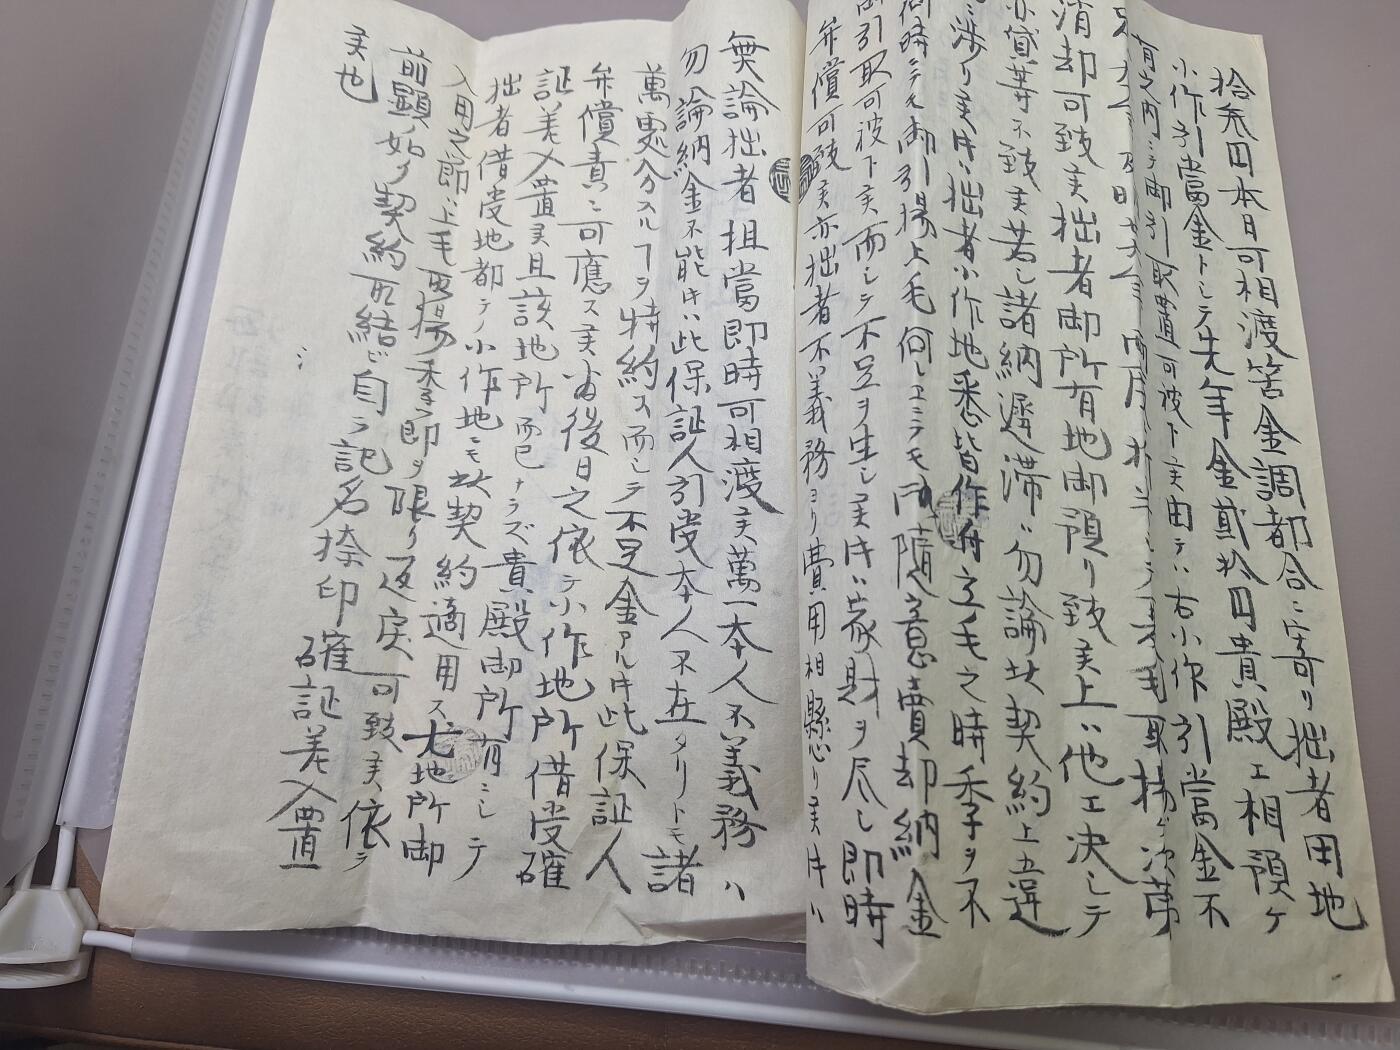 拾弐円本日可相渡筈金調都合ニ寄リ拙者田地
小作引當金トシテ先年金貳拾円貴殿エ相預ケ
有之内ニテ御引取置可被下候由テハ右小作引當金不
消却可致候拙者御所有地御預リ致候上ハ他エ決シテ
亦貸等不致候若シ諸納遅滞ハ勿論此契約上ニ違
渉リ候時ハ拙者小作地悉皆作付立毛之時季ヲ不
何時ニテモ御引揚上毛何レエニテモ御随意賣却納金
引取可被下候而シテ不足ヲ生シ候時ハ家財ヲ尽シ即時
弁償可致候亦拙者不義務ヨリ費用相懸リ候時ハ
無論拙者担當即時可相渡候萬一本人不義務ハ
勿論納金不能時ハ此保証人引受本人不在タリトモ諸
萬更分スルヿヲ特約ス而シテ不足金アル時此保証人
弁償責ニ可應ス候為後日之依テ小作地所借受確
証差入置候且該地所而已ナラズ貴殿御所有ニシテ
拙者借受地都テノ小作地モ此契約適用ス尤地所御
入用之節ハ上毛取揚季節ヲ限リ返戻可致候依テ
前顕ノ如ク契約取結ビ自ラ記名捺印確証差入置
候也